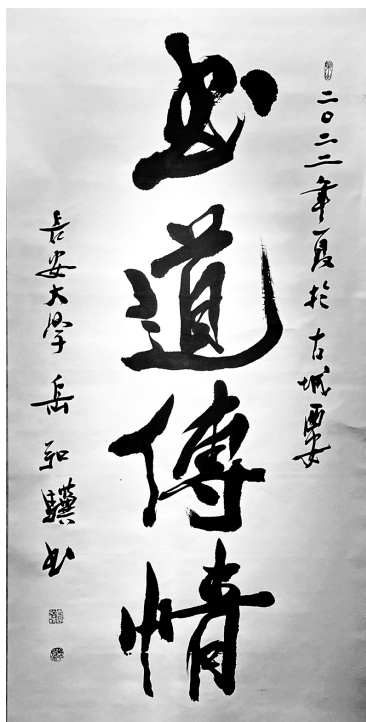 二〇二二年夏於古城西安
书道傳情
長安大學 岳和驥书